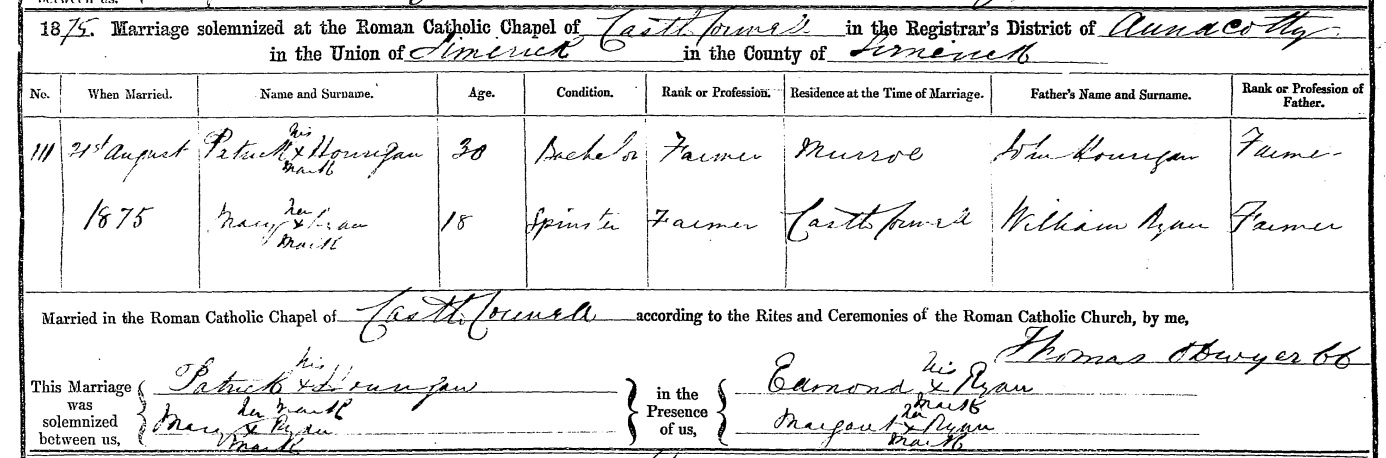 1875. Marriage solemnized at the Roman Catholic Chapel of Castle Connell in the Registrar's District of Annacotty
in the Union of Limerick in the County of Limerick
No. When Married. Name and Surname. Age. Condition. Rank or Profession. Residence at the Time of Marriage. Father's Name and Surname. Rank or Profession of Father.
his
111 21st August Patrick x Hourigan 30 Bachelor Farmer Murroe John Hourigan Farmer
mark
her
1875 Mary x Ryan 18 Spinster Farmer Castle Connell William Ryan Farmer
mark
Married in the Roman Catholic Chapel of Castle Connell according to the Rites and Ceremonies of the Roman Catholic Church, by me,
Thomas O'Dwyer CC
This Marriage was solemnized between us,
his
Patrick x Hourigan
mark
her
Mary x Ryan
mark
in the Presence of us,
his
Edmond x Ryan
mark
her
Margaret x Ryan
mark